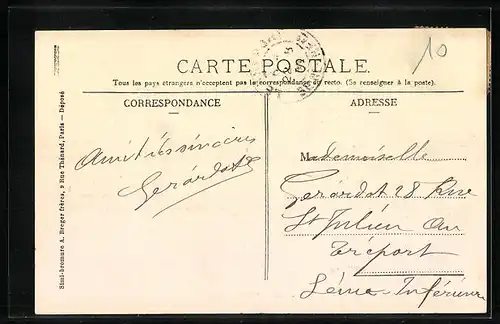 10
CARTE POSTALE.
Tous les pays étrangers n'acceptent pas la correspondance au recto. (Se renseigner à la poste).
CORRESPONDANCE
ADRESSE
Amitiés sincères
Gérardot
Mademoiselle
Gérardot 28 Rue
St Julien Au
Tréport
Séine-Inférieure
Simi-bromure A. Breger frères, 9 Rue Thénard, Paris — Déposé